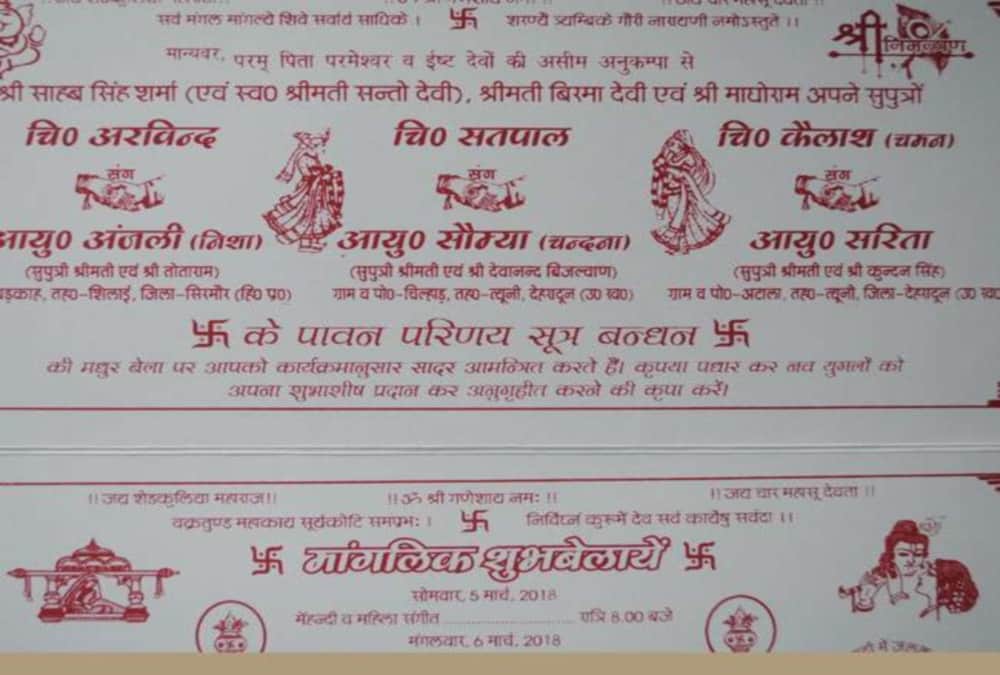 सर्व मंगल मांगल्ये शिवे सर्वार्थ साधिके । शरण्ये त्र्यम्बिके गौरी नारायणी नमोऽस्तुते ।।
श्री
निमन्त्रण
मान्यवर, परम् पिता परमेश्वर व ईष्ट देवों की असीम अनुकम्पा से
श्री साहब सिंह शर्मा (एवं स्व0 श्रीमती सन्तो देवी), श्रीमती बिरमा देवी एवं श्री माधोराम अपने सुपुत्रों
चि0 अरविन्द चि0 सतपाल चि0 कैलाश (चमन)
संग संग संग
आयु0 अंजली (निशा) आयु0 सौम्या (चन्दना) आयु0 सरिता
(सुपुत्री श्रीमती एवं श्री तोताराम) (सुपुत्री श्रीमती एवं श्री देवानन्द बिजल्वाण) (सुपुत्री श्रीमती एवं श्री कुन्दन सिंह)
तह0-शिलाई, जिला-सिरमौर (हि0 प्र0) ग्राम व पो0-चिल्हाड़, तह0-त्यूनी, देहरादून (उ0 ख0) ग्राम व पो0-अटाला, तह0-त्यूनी, जिला-देहरादून (उ0 ख0
卐 के पावन परिणय सूत्र बन्धन 卐
की मधुर बेला पर आपको कार्यक्रमानुसार सादर आमन्त्रित करते हैं। कृपया पधार कर नव युगलों को
अपना शुभाशीष प्रदान कर अनुगृहीत करने की कृपा करें।
।। जय शेडकुलिया महाराज।। ।।ॐ श्री गणेशाय नमः ।। ।। जय चार महासू देवता ।।
वक्रतुण्ड महाकाय सूर्यकोटि समप्रभः । निर्विघ्नं कुरूमें देव सर्व कार्येषु सर्वदा ।।
卐 मांगलिक शुभबेलायें 卐
सोमवार, 5 मार्च, 2018
मेंहन्दी व महिला संगीत रात्रि 8.00 बजे
मंगलवार, 6 मार्च, 2018